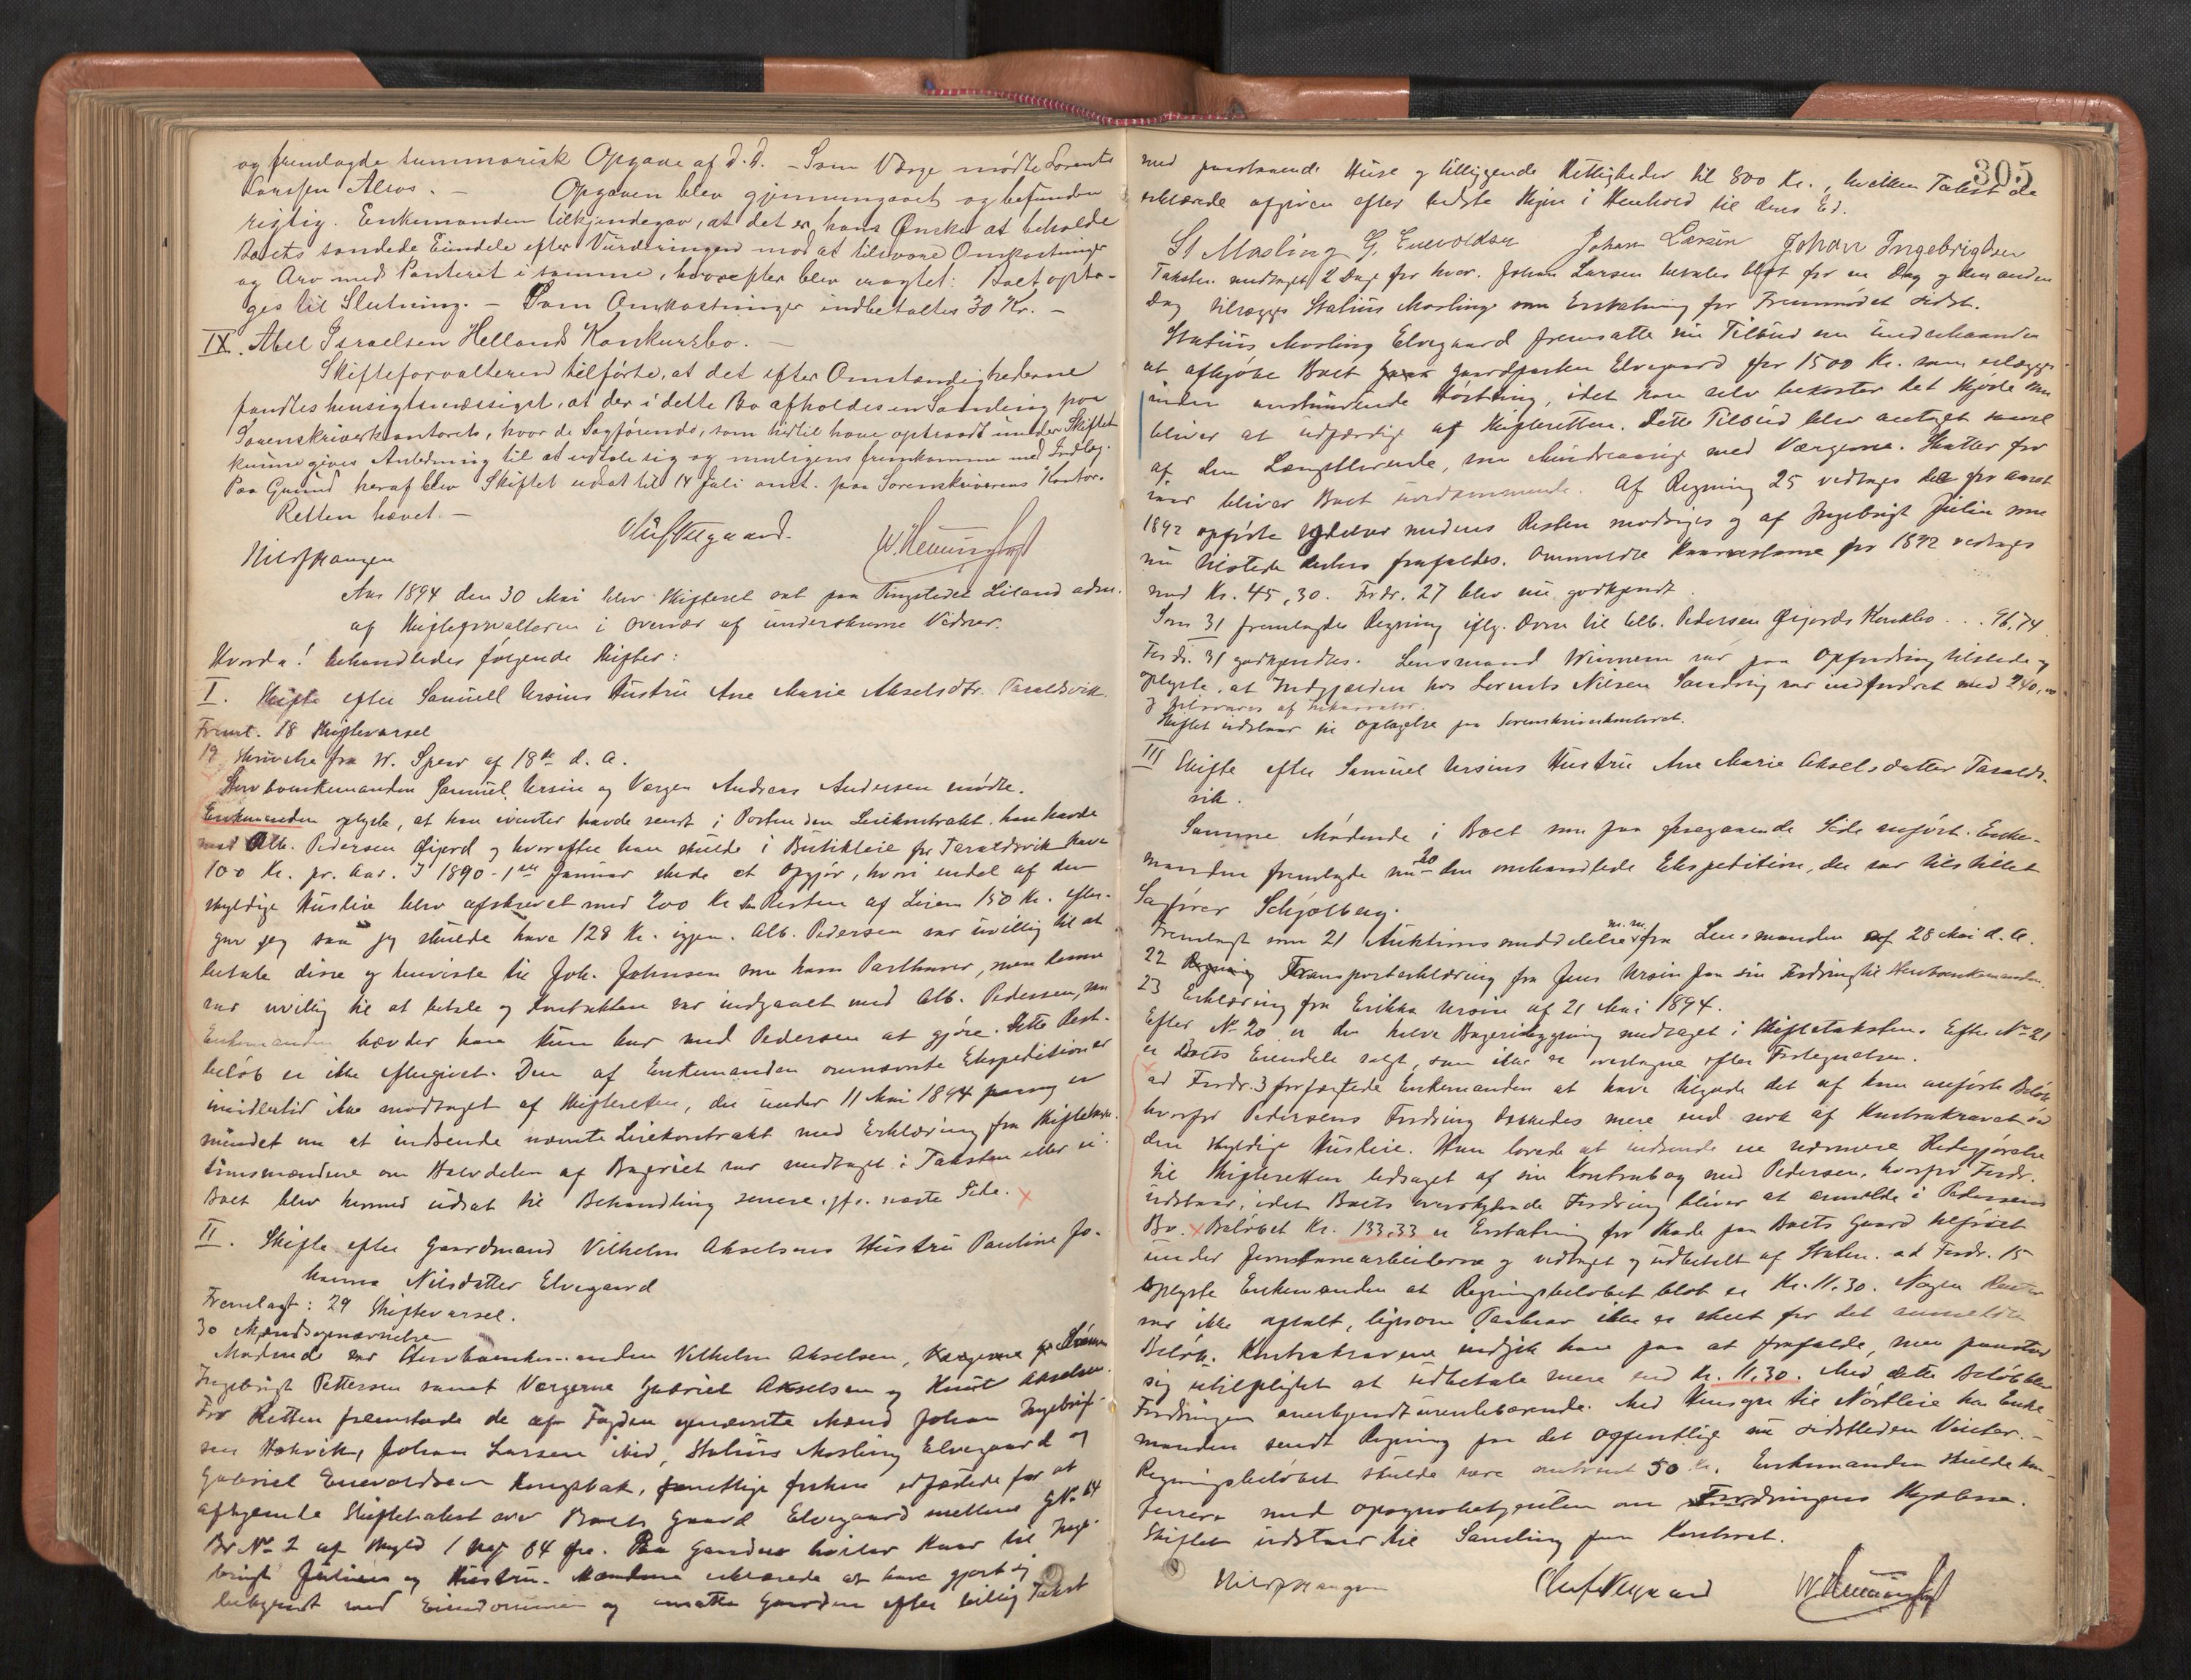 og fremlagde summarisk Opgave af d.d. – Som Værge mødte Lorents
Alsos. – Opgaven blev gjennemgaaet og befunden
rigtig. Enkemanden tilkjendegav, at det er hans Ønske at beholde
Boets samlede Eiendele efter Vurderingen mod at tilsvare Omkostninger
og Arv med Panteret i samme, hvorefter blev eragtet: Boet opta-
ges til Slutning. – Som Omkostninger indbetaltes 30 Kr. –
IX. Abel Israelsen Hellands Konkursbo. –
Skifteforvalteren tilførte, at det efter Omstændighederne
fandtes hensigtsmæssigst, at der i dette Bo afholdes en Samling paa
Sorenskriverkontoret, hvor de Sagførende, som hidtil have optraadt under Skiftet
kunne gives Anledning til at udtale sig og muligens fremkomme med Indlæg.
Paa Grund heraf blev Skiftet udsat til 14 Juli anst. paa Sorenskriverens Kontor.
Retten hævet. –
Aar 1894 den 30 Mai blev Skifteret sat paa Tingstedet Liland adm.
af Skifteforvalteren i Overvær af underskrevne Vidner.
Hvorda! behandledes følgende Skifter:
I. Skifte efter Samuel Ursins Hustru Ane Marie Akselsdtr. Taraldsvik.
Freml. 18 Skiftevarsel
19 Skrivelse fra W. Speer af 18de d. A.
Stervboenkemanden Samuel Ursin og Værgen Andreas Andersen mødte.
Enkemanden oplyste, at han ivinter havde sendt i Posten den Leiekontrakt han havde
med Alb. Pedersen Øijord og hvorefter han skulde i Butikleie for Taraldsvik have
100 Kr. pr. Aar. I 1890 - 1ste Januar skede et Opgjør, hvori endel af den
skyldige Husleie blev afskrevet med 200 Kr Resten af Leien 150 Kr. efter-
gav jeg saa jeg skulde have 128 Kr. igjen. Alb. Pedersen var uvillig til at
betale disse og henviste til Joh. Johnsen som hans Parthaver, men denne
var uvillig til at betale og Kontrakten var indgaaet med Alb. Pedersen, som
Enkemanden hævder han kun har med Pedersen at gjøre. Dette Rest-
beløb er ikke eftergivet. Den af Enkemanden omnævnte Ekspedition er
imidlertid ikke modtaget af Skifteretten, der under 11 Mai 1894
mindet om at indsende nævnte Leiekontrakt med Erklæring fra Skiftetakst-
tionsmændene om Halvdelen af Bageriet var medtaget i Taksten eller ei.
Boet blev hermed udsat til Behandling senere. jfr. næste Side. x
II. Skifte efter Gaardmand Vilhelm Akselsens Hustru Pauline Jo-
hanna Nilsdatter Elvegaard
Fremlagt: 29 Skiftevarsel.
30 Mændsopnævnelsen
Mødende var Stervboenkemanden Vilhelm Akselsen,
Ingebrigt Pettersen samt Værgerne Gabriel Akselsen og Knut Akselsen.
For Retten fremstode de af Fogden opnævnte Mænd Johan Ingebrigt-
sen Haavik, Johan Larsen ibid, Statius Mosling Elvegaard og
Gabriel Enevoldsen Kongsbak, edfæstede for at
afhjemle Skiftetakst over Boets Gaard Elvegaard G.No. 64
Br No 2 af Skyld 1 Mk 04 Øre. Paa Gaarden hviler Kaar til Inge-
brigt Julius og Hustru. Mændene erklærede at have gjort sig
bekjendt med Eiendommen og ansatte Gaarden efter billig Takst
305
med paastaaende Huse og tilliggende Rettigheder til 800 Kr., hvilken Takst de
erklærede afgiven efter bedste Skjøn i Henhold til deres Ed.
St Mosling G. Enevoldsen Johan Larsen Johan Ingebrigtsen
Taksten medtoges 2 Dage for hver. Johan Larsen betales blot for en Dag og den anden
Dag tillægges Statius Mosling som Erstatning for Fremmødet sidst.
Statius Mosling Elvegaard fremsatte nu Tilbud om underhaanden
at afkjøbe Boet Gaardparten Elvegaard for 1500 Kr. som erlægges
inden anstundende Høstting, idet han selv bekoster det Skjøde som
bliver at udfærdige af Skifteretten. Dette Tilbud blev antaget saavel
af den Længstlevende, som Mindreaarige med Værgerne. Skatter for
iaar bliver Boet uvedkommende. Af Regning 25 vedtages det for Aaret
1892 opførte Ydelser medens Resten modsiges og af Ingebrigt Julius som
nu tilstede derhos frafaldes. Anmeldte Kaarrestance for 1892 vedtages
med Kr. 45,30. Fordr. 27 blev nu godkjendt.
Som 31 fremlagdes Regning iflg. Dom til Alb. Pedersen Øijords Konkbo. . . 96,74
Fordr. 31 godkjendtes. Lensmand Winnem var paa Opfordring tilstede og
oplyste, at Indgjælden hos Lorents Nilsen Sandvig var indfordret med 240,00
Skiftet udstaar til Optagelse paa Sorenskriverkontoret.
III Skifte efter Samuel Ursins Hustru Ane Marie Akselsdatter Taralds-
vik.
Samme Mødende i Boet som paa foregaaende Side anført. Enke-
manden fremlagde nu 20 den omhandlede Ekspedition, der var tilstillet
Sagfører Schjølberg.
Fremlagt som 21 Auktionsmeddelelse m. m. fra Lensmanden af 28 Mai d. A.
22 Transporterklæring fra Jens Ursin paa sin Fordring til Stervboenkemanden.
23 Erklæring fra Erikka Ursin af 21 Mai 1894.
Efter No 20 er den halve Bageribygning medtaget i Skiftetaksten. Efter No 21
er Boets Eiendele solgt, som ikke er overtagne efter Fortegnelsen.
ad Fordr. 3 forfægtede Enkemanden at have tilgode det af ham anførte Beløb
hvorfor Pedersens Fordring dækkedes mere end nok af Kontrakravet på
den skyldige Husleie. Han lovede at indsende en nærmere Redegjørelse
til Skifteretten ledsaget af sin Kontrabog med Pedersen, hvorfor Fordr.
udstaar, idet Boets overskydende Fordring bliver at anmelde i Pedersens
Bo. x Beløbet Kr. 133,33 er Erstatning for Skade paa Boets Gaard tilføiet
under Jernbanearbeiderne og vedtaget og udbetalt af Staten. ad Fordr. 15
oplyste Enkemanden at Regningsbeløbet blot er Kr. 11.30. Nogen Renter
var ikke aftalt, ligesom Paakrav ikke er skeet for det anmeldte
Beløb. Kontrakravene indgik han paa at frafalde, men paastod
sig utilpligtet at udbetale mere end Kr. 11,30. Med dette Beløb blev
Fordringen anerkjendt urentebærende. Med Hensyn til Nøstleie har Enke-
manden sendt Regning paa det offentlige nu sidstleden Vinter. –
Regningsbeløbet skulde være omtrent 50 Kr. Enkemanden skulde kon-
ferere med Opsynsbetjenten om Fordringens Skjæbne.
Skiftet udstaar til Samling paa Kontoret.